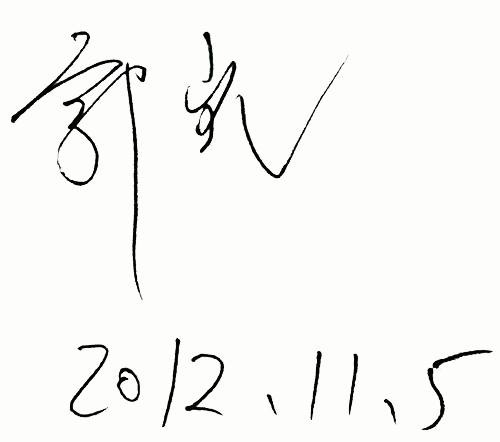 郭
2012.11.5